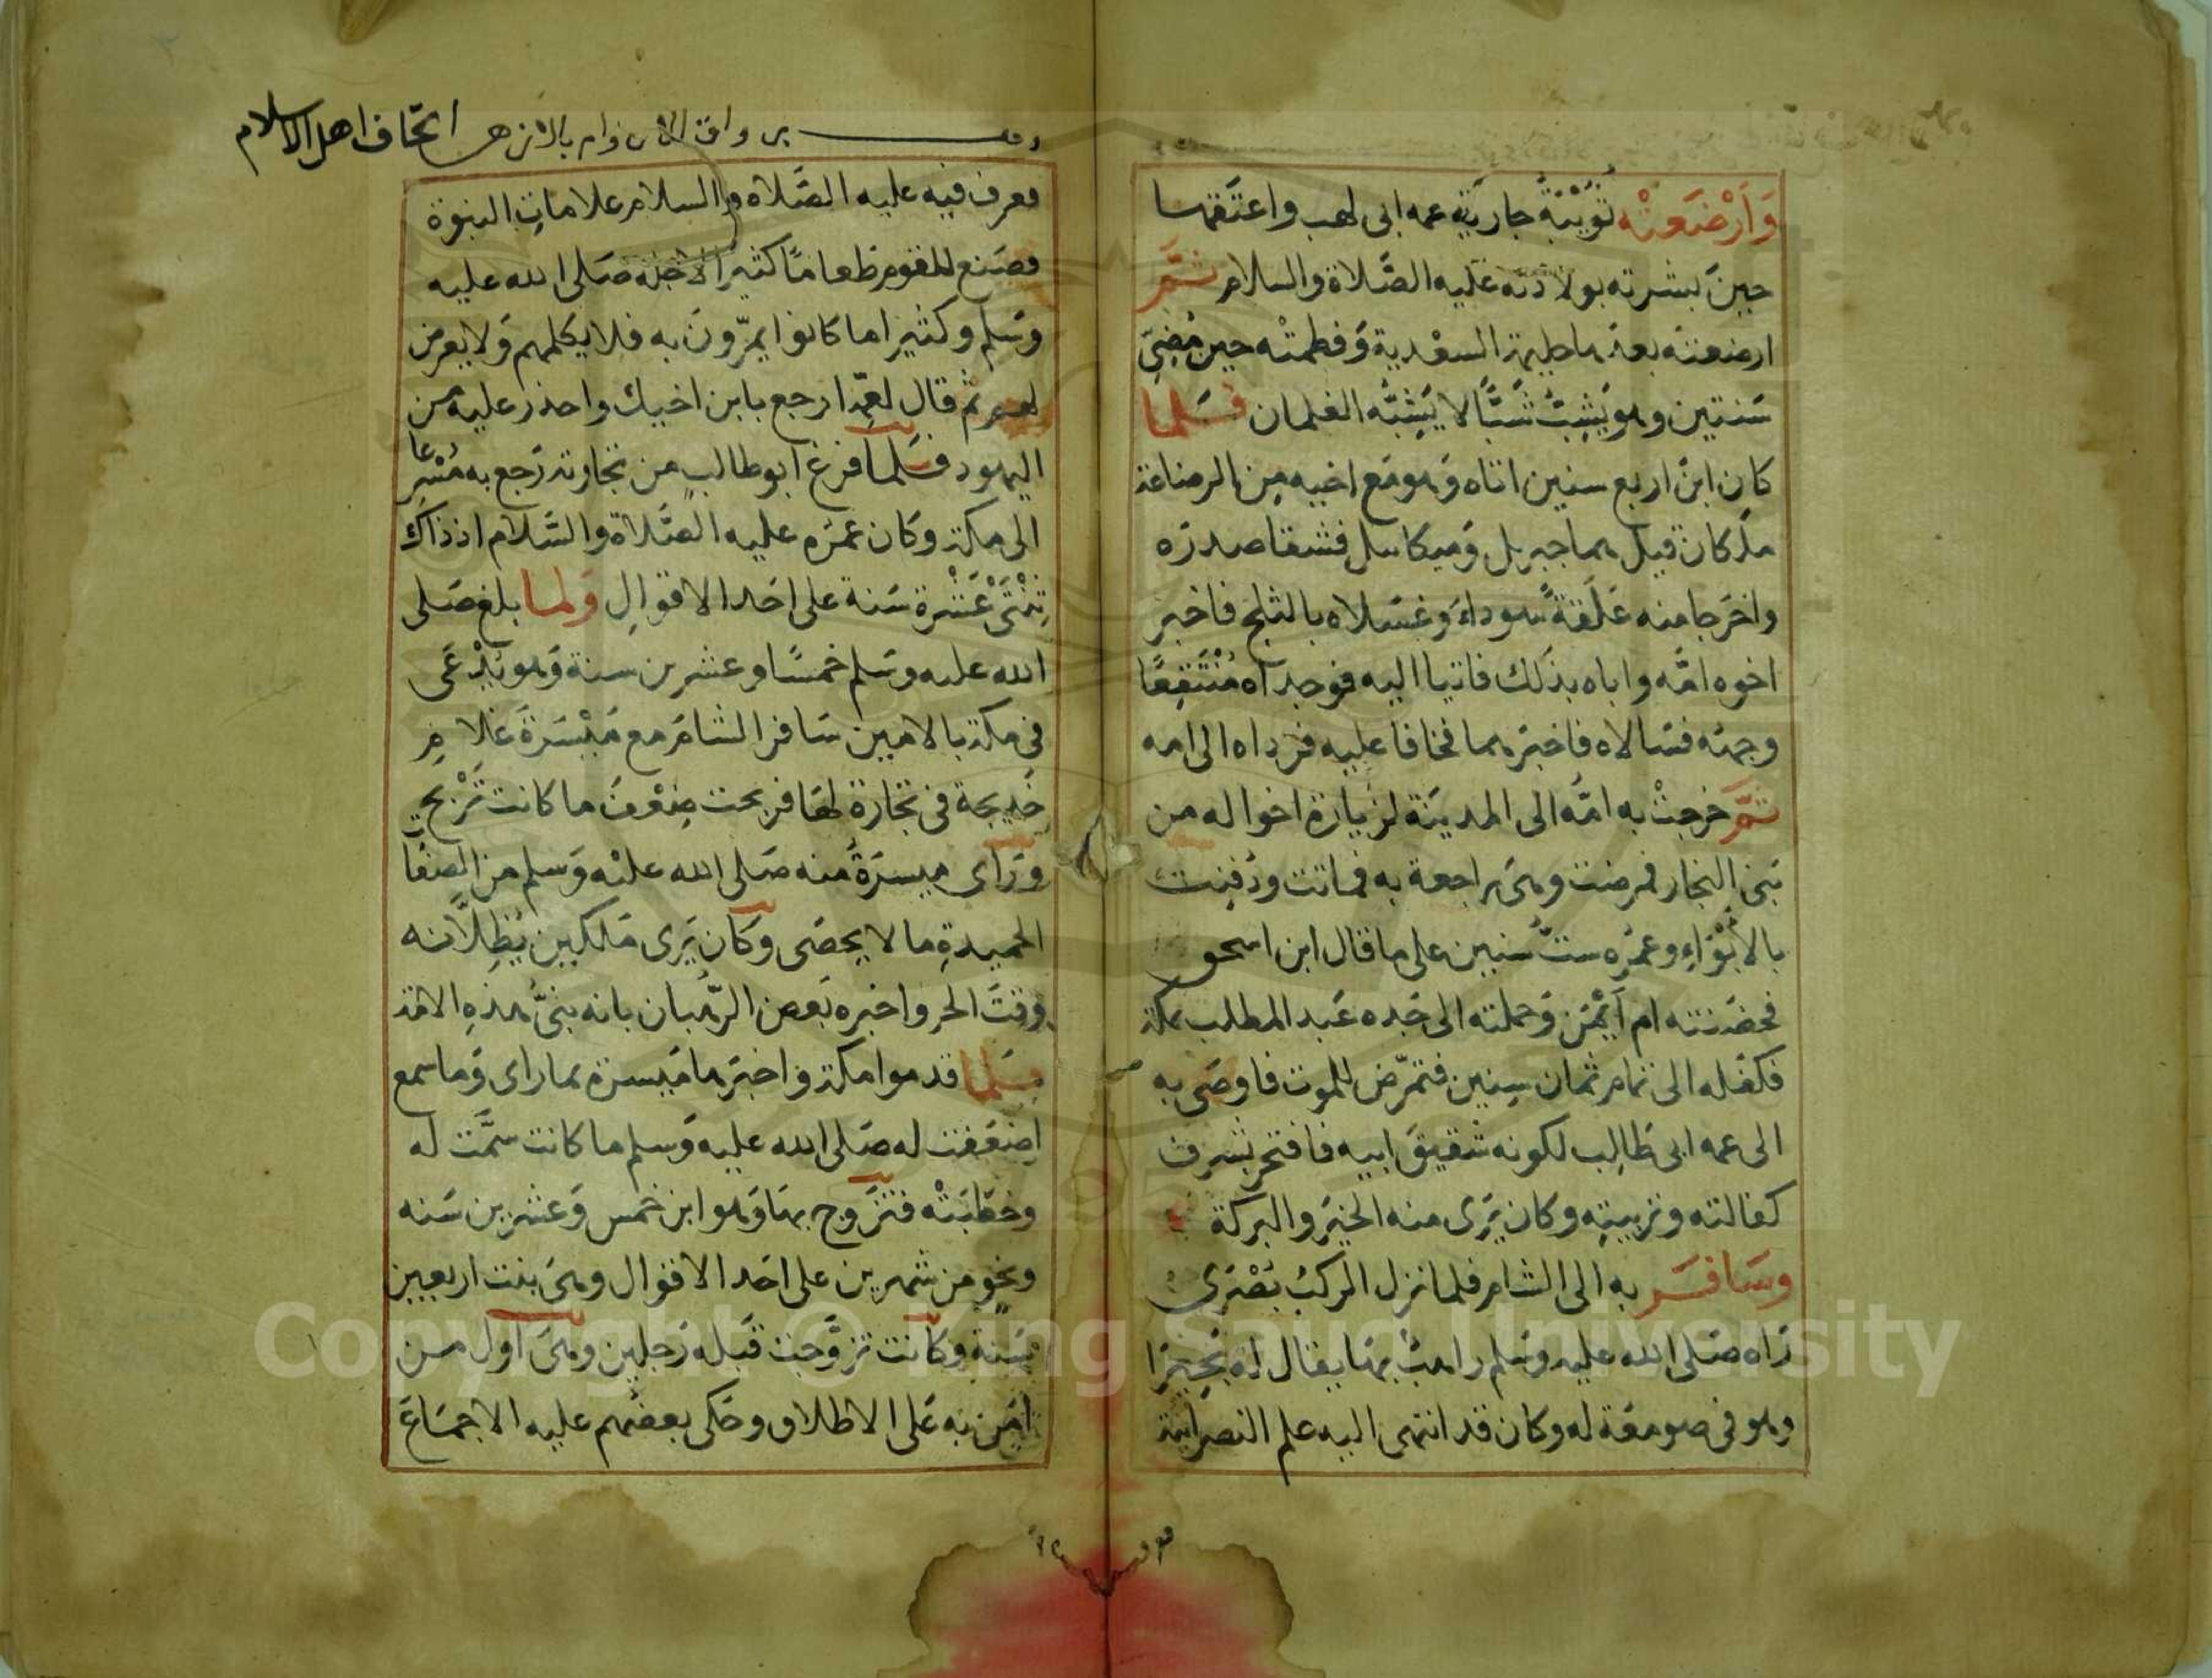 وَاَرْضَعَتْه ثُوَيْبَةُ جاريَة عمه ابى لهب واعتَقها
حينَ بشرته بولادته عَليه الصَّلاة والسلام ثمَّ
ارضعته بعدها حليمة السعْدية وَفطمتْه حين مُضِىِّ
سَنتين وهو يَشِبُّ شَبًّا لا يَشِبُّه الغلمان فَلما
كان ابنَ اربع سنين اتاه وَهو مَع اخيه مِن الرضاعة
ملَكان قيل هما جبريل وَميكائيل فشقا صدرَه
واخرَجا منه عَلَقةً سَوداءَ وَغسَلاه بالثلج فاخبر
اخوه امَّه واباه بذَلك فاتيا اليه فوجداه مُنْتَقِعًا
وجهُه فسَالاه فاخبَرهما فخافا عليه فرداه الى امه
ثمَّ خرجتْ به امُّه الى المدينَة لزيارة اخواله من
بَنى النجار فمرضت وهىَ راجعة به فماتت ودُفِنت
بالأَبْوَاءِ وعمُره ستُّ سنين على ما قال ابن اسحق
فحضَنته ام اَيْمَن وَحملته الى جَده عَبد المطلب بمكة
فكفَله الى تمام ثمان سِنين فتمرّض للموت فاوصَى به
الى عمه ابى طَالِب لكونه شقيقَ ابيه فافتخر بشرف
كفالته وتربيتِه وكان يَرى منه الخيرَ والبركة
وسَافر به الى الشام فلما نزل الركبُ بُصْرَى
رَاه صَلى الله عليه وسَلم راهبٌ بهَا يقال له بَحِيرَا
وهو فى صومعَة له وكان قد انتهى اليه علم النصرانية
فعرف
وقف برواق الاروام بالازهر اتحاف اهل الاسلام
فعرف فيه عليه الصَّلاه والسلام علاماتِ النبوة
فصَنع للقوم طعامًا كثيرًا لاجله صَلى الله عليه
وسَلم وكثيرا ما كانوا يمرّونَ به فلا يكلمهم وَلا يعرض
لهم ثم قال لعمِّه ارجع بابن اخيك واحذر عليه من
اليهود فلما فرغ ابو طالب من تجارته رَجع به مُسْرِعا
الى مكة وكان عمره عليه الصَّلاة والسَّلام اذ ذاك
ثِنْتَىْ عَشْرة سَنة على احَد الاقوالِ وَلما بلغ صَلى
الله عليه وسَلم خمسًا وعشرين سنة وَهو يُدْعَى
فى مكة بالامين سَافر الشامَ مع مَيْسَرَةَ غلامِ
خديجة فى تجَارة لهَا فربحت ضِعْفَ ما كانت تَرْبح
ورَاى ميسرَةُ منه صَلى الله عليْه وَسلم من الصفا
الحميدةِ ما لا يحصَى وكان يَرى مَلكين يُظِلَّانه
وقتَ الحر واخبره بَعض الرُّهبان بانه نبىُّ هذهِ الامة
فَلما قدموا مكة واخبَرها مَيسرة بما راى وَما سمع
اضعَفت له صَلى الله عليه وَسلم ما كانت سمَّت له
وخطبَتْه فتزَوج بهَا وَهو ابن خمس وَعشرين سَنه
ونحوٍ من شهرين على احَد الاقوال وهىَ بنت اربعين
سَنة وكانت تزوَّجت قَبله رَجلين وهىَ اول من
امَن به عَلى الاطلاق وحَكى بعضُهم عليه الاجماعَ
Copyright © King Saud University